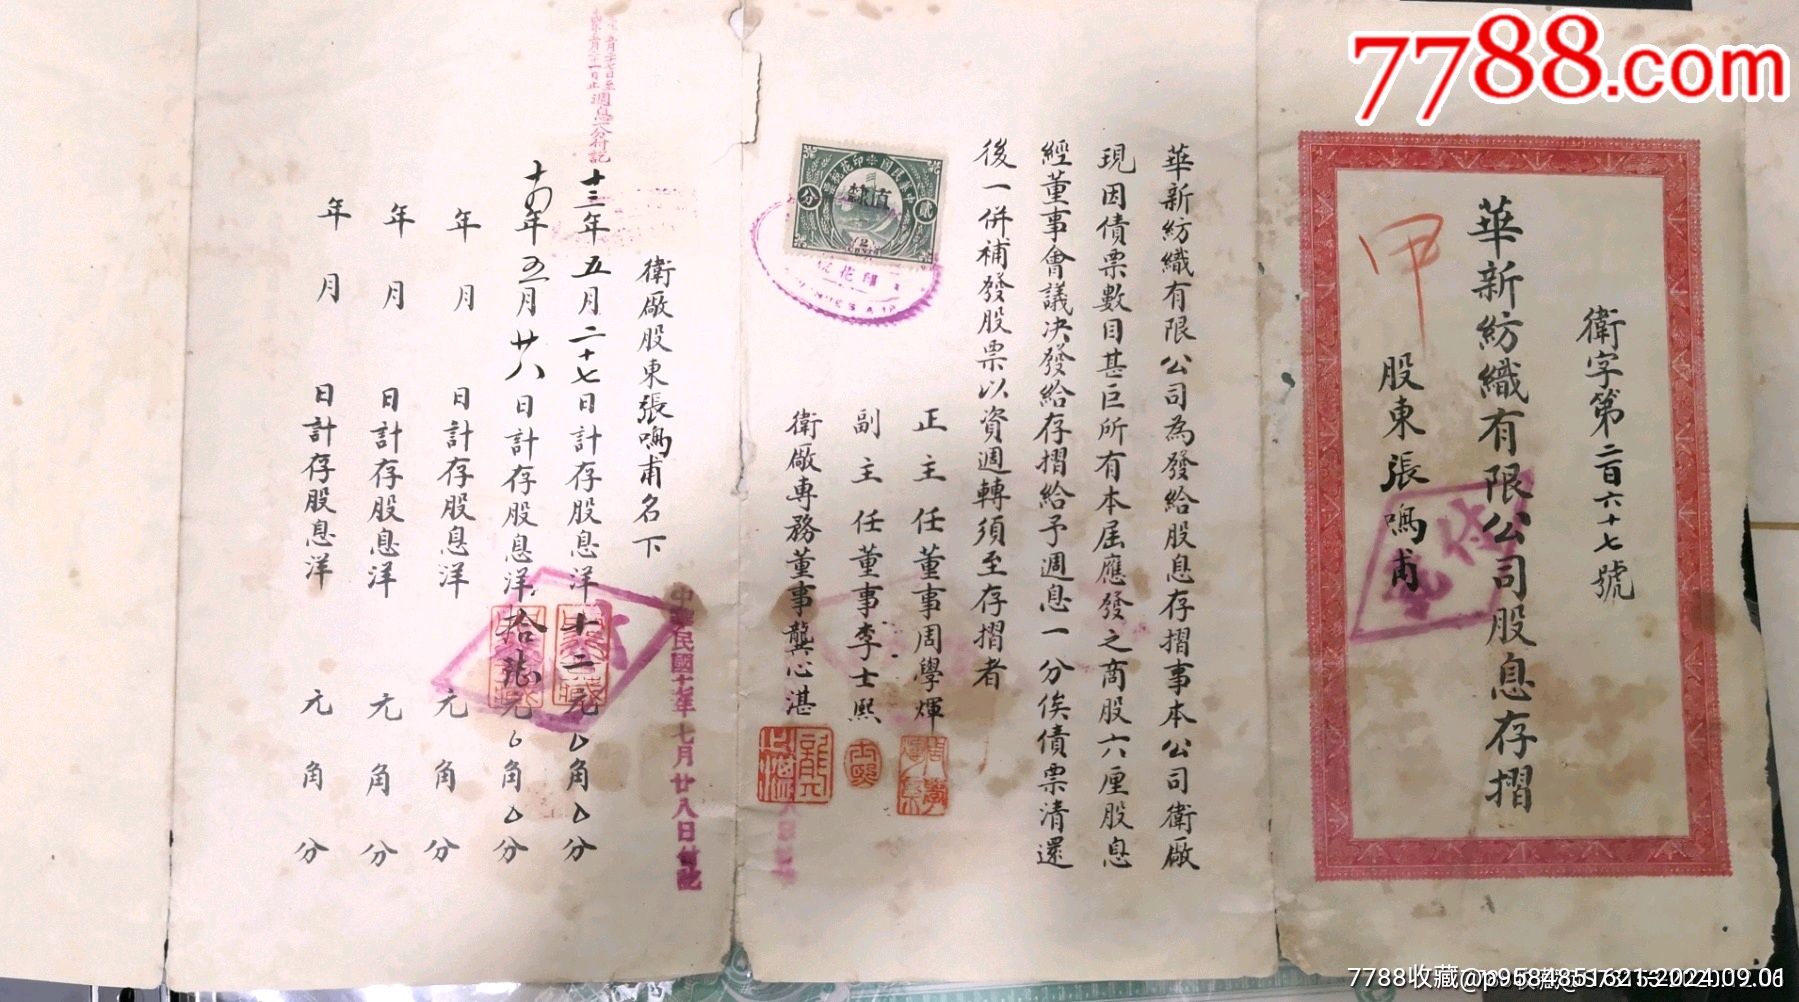 7788.com
衛字第二百六十七號
華新紡織有限公司股息存摺
甲
股東張鳴甫
華新紡織有限公司為發給股息存摺事本公司衛廠
現因債票數目甚巨所有本届應發之商股六厘股息
經董事會議决發給存摺給予週息一分俟債票清還
後一併補發股票以資週轉須至存摺者
正主任董事周學煇
副主任董事李士熙
衛廠專務董事龔心湛
直隸
貳
分
中華民國十六年七月廿八日付訖
衛廠股東張鳴甫名下
十三年五月二十七日計存股息洋十二元△角△分
十四年五月廿八日計存股息洋拾元△角△分
年月日計存股息洋元角分
年月日計存股息洋元角分
年月日計存股息洋元角分
7788收藏